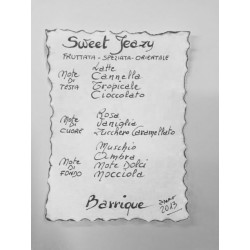 Sweet Teazy
FRUTTATA - SPEZIATA - ORIENTALE
NOTE DI TESTA
Latte
Cannella
Tropicale
Cioccolato
NOTE DI CUORE
Rosa
Vaniglia
Zucchero Caramellato
NOTE DI FONDO
Muschio
Ambra
Note Dolci
Nocciola
Barrique
2013